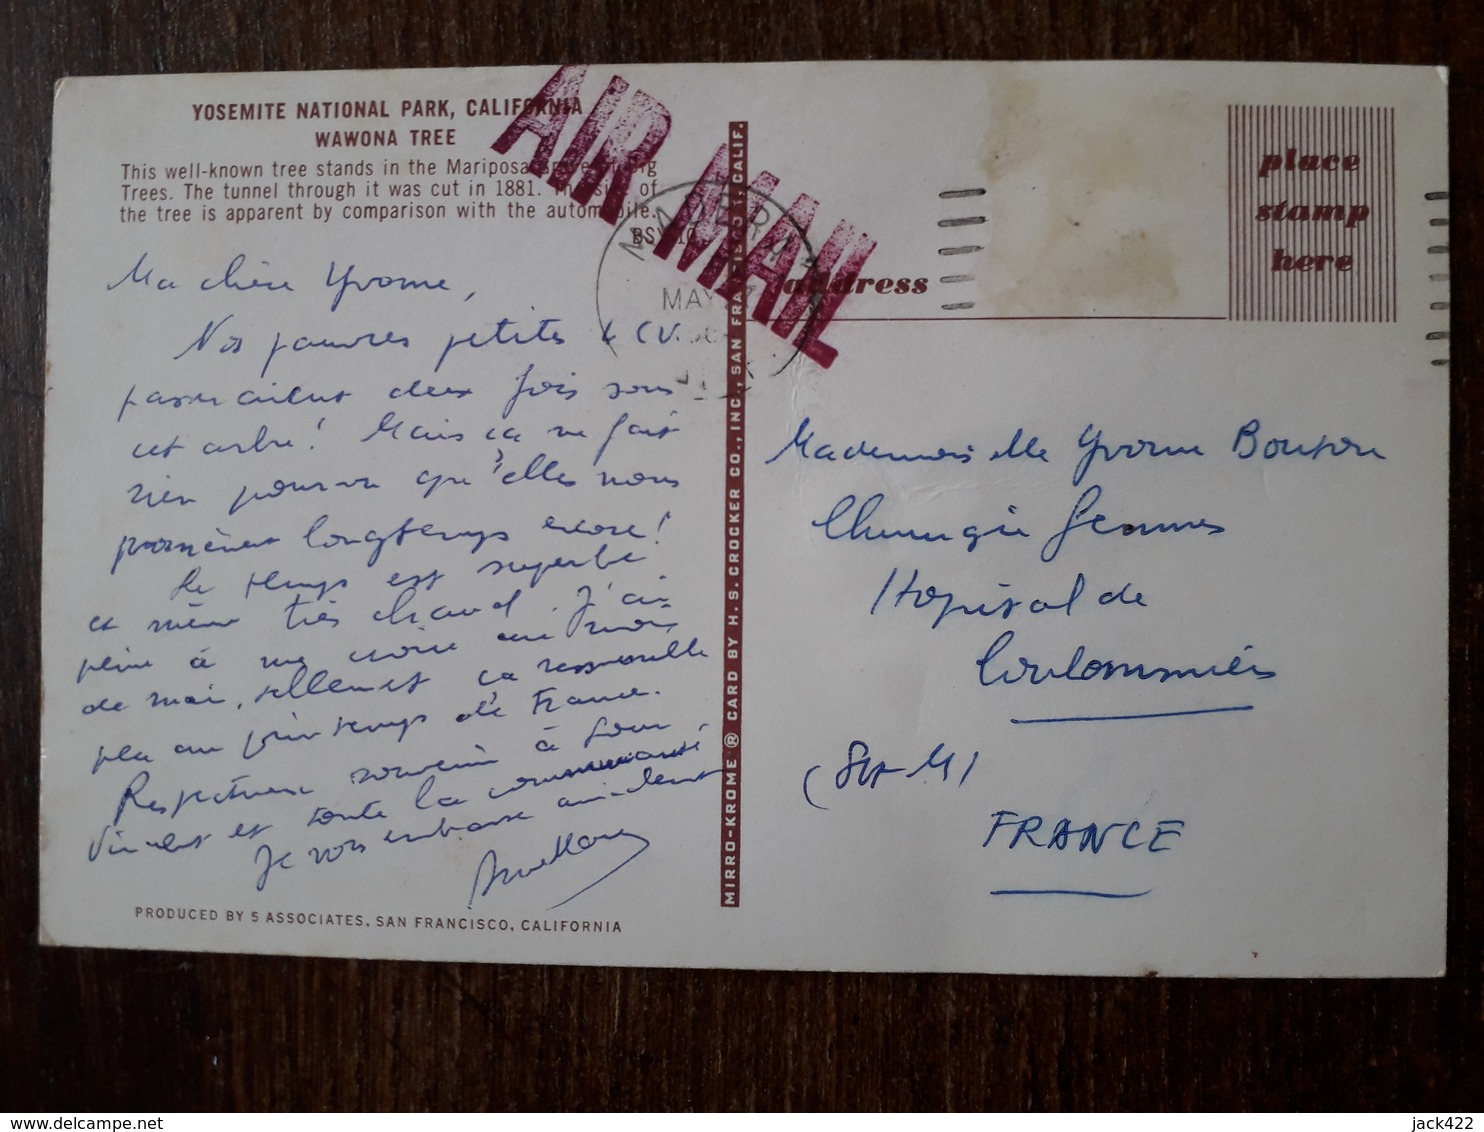 YOSEMITE NATIONAL PARK, CALIFORNIA
WAWONA TREE
This well-known tree stands in the Mariposa
Trees. The tunnel through it was cut in 1881. of
the tree is apparent by comparison with the automobile.
AIR MAIL
MADERA
MAY
Ma chère Yvonne,
Nos pauvres petites 4 CV
passeraient deux fois sous
cet arbre! Mais ça ne fait
rien pourvu qu'elles nous
promènent longtemps encore!
Le temps est superbe
et même très chaud. J'ai
peine à me croire au mois
de mai, tellement ça ressemble
peu au printemps de France.
Respectueux souvenir à Soeur
Vincent et toute la communauté
Je vous embrasse
PRODUCED BY 5 ASSOCIATES, SAN FRANCISCO, CALIFORNIA
MIRRO-KROME ® CARD BY H. S. CROCKER CO., INC., SAN FRANCISCO 1, CALIF.
address
place
stamp
here
Mademoiselle Yvonne
Chirurgie Femmes
Hôpital de
Coulommiers
(S et M)
FRANCE
jack422